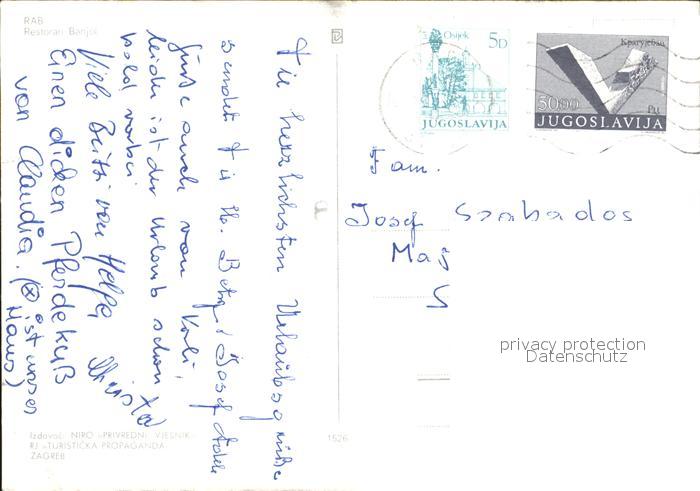 RAB
Restoran Banjol
Die herzlichsten Urlaubsgrüße
sendet Fam.
Grüße auch von
leider ist der Urlaub schon
bald vorbei
Viele Grüße von Helga
Christa
Einen dicken Pferdekuß
von Claudia. (⊗ ist unser
Haus)
Izdavač: NIRO »PRIVREDNI VJESNIK«
RJ »TURISTIČKA PROPAGANDA«
ZAGREB
1526
Osijek
5D
JUGOSLAVIJA
Крагујевац
50.00
JUGOSLAVIJA
Fam.
Josef Szabados
privacy protection
Datenschutz